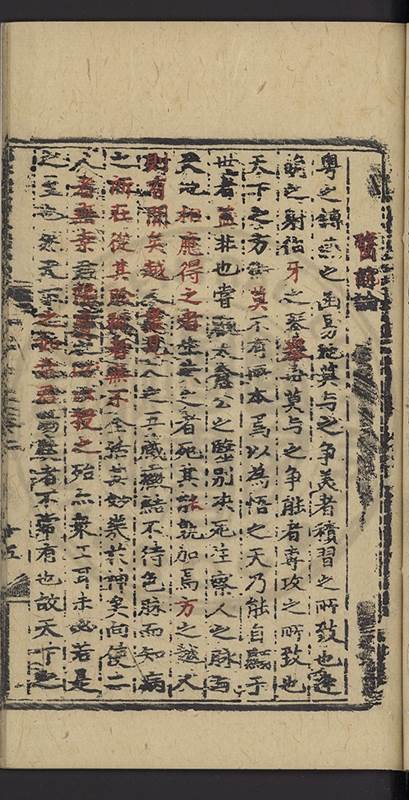 醫論
粤之鏄燕之函易地莫与之争美者積習之所致也逢
蒙之射伯牙之琴舉世莫与之争能者專攻之所致也
天下之方術莫不有本焉以為悟之天乃能自騁于
世者蓋非也嘗觀太倉公之鑒別决死生察人之脉与
天地相應得之者生失之者死其訣就加焉方之越人
則有間矣越人盡見人之五臟癥結不待色脉而知病
之所在從其 者無不全 其妙幾於神矣向使二
人者無幸 授之殆亦衆工耳未必若是
之至也然天下之 者不常有也故天下之
十五